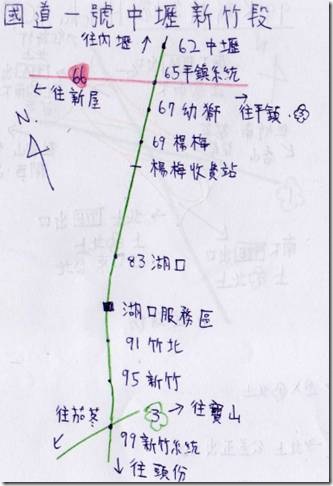 國道一號中壢新竹段
往內壢 62中壢
65平鎮系統
66
往新屋 67幼獅 往平鎮
N
69楊梅
楊梅收費站
83湖口
湖口服務區
91竹北
95新竹
往茄苳 3 往寶山
99新竹系統
往頭份